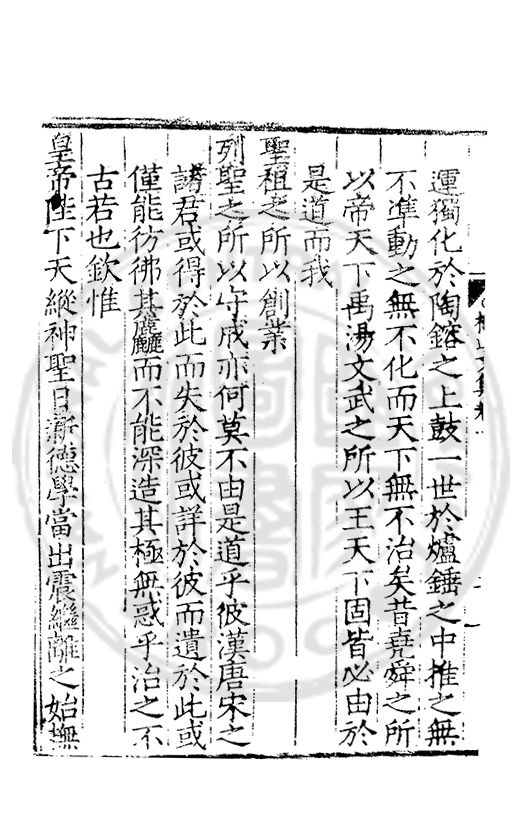 運獨化於陶鎔之上鼓一世於爐錘之中推之無
不準動之無不化而天下無不治矣昔堯舜之所
以帝天下禹湯文武之所以王天下固皆必由於
是道而我
聖祖之所以創業
列聖之所以守成亦何莫不由是道乎彼漢唐宋之
諸君或得於此而失於彼或詳於彼而遺於此或
僅能彷彿其麤而不能深造其極無惑乎治之不
古若也欽惟
皇帝陛下天縱神聖日新德學當出震繼離之始撫